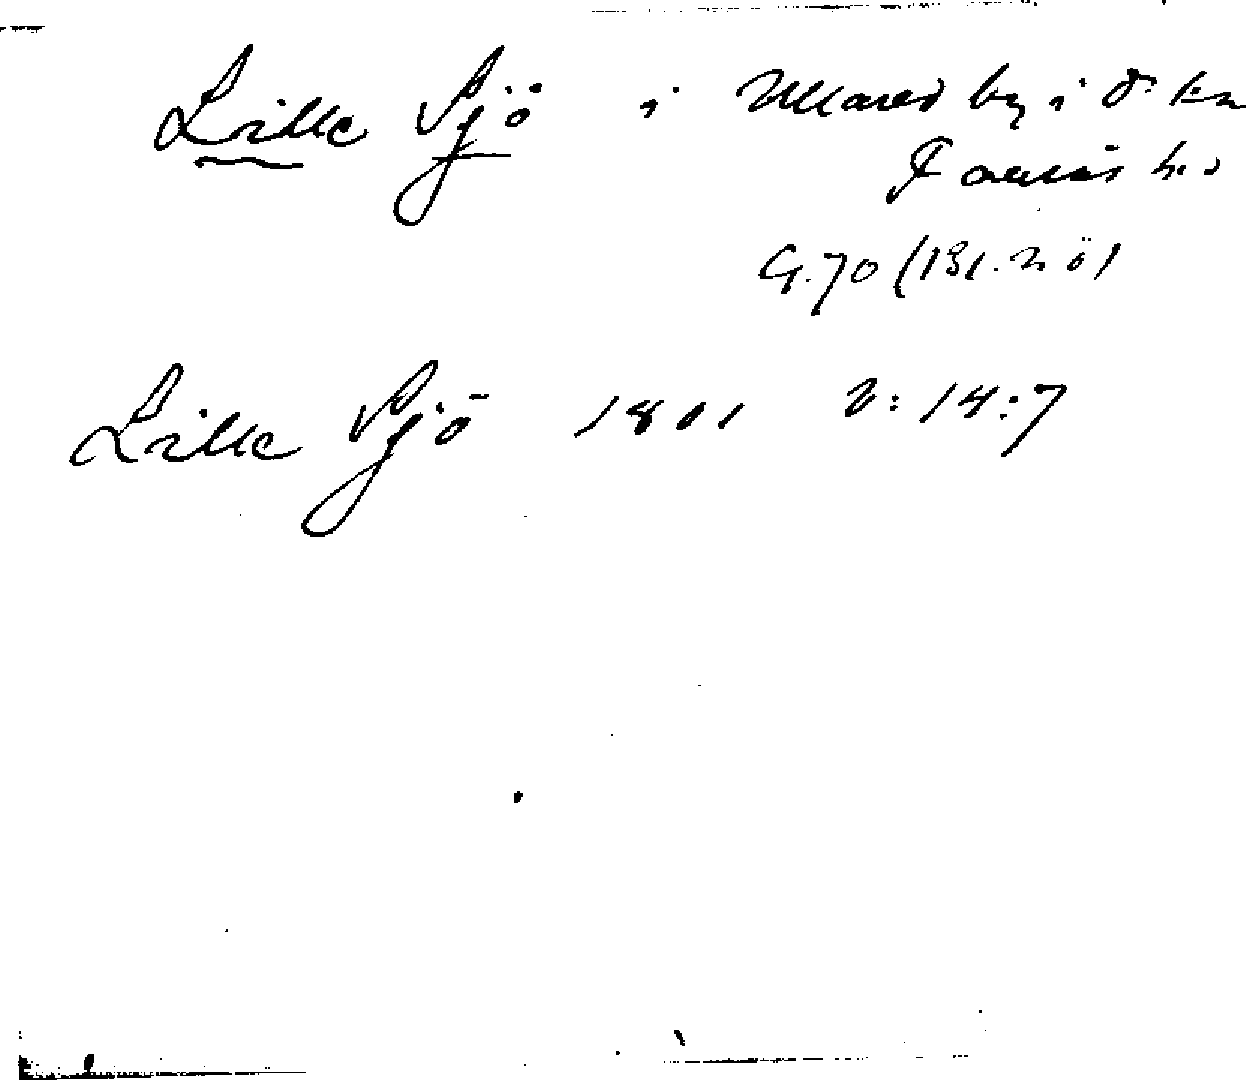 Lille Sjö i Ullared by i d: kn
Faurås hd
G. 70 (131. 2 ö)
Lille Sjö 1801 2: 14: 7